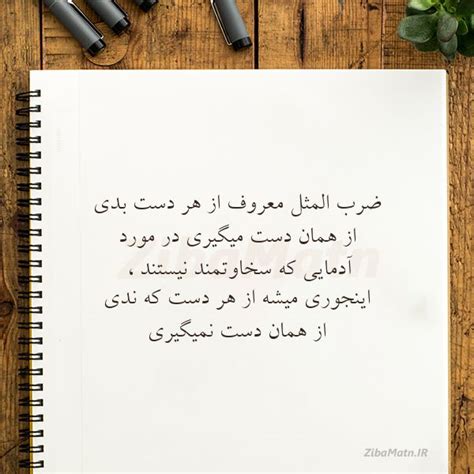 ضرب المثل معروف از هر دست بدی
از همان دست میگیری در مورد
آدمایی که سخاوتمند نیستند ،
اینجوری میشه از هر دست که ندی
از همان دست نمیگیری
ZibaMatn
ZibaMatn.IR